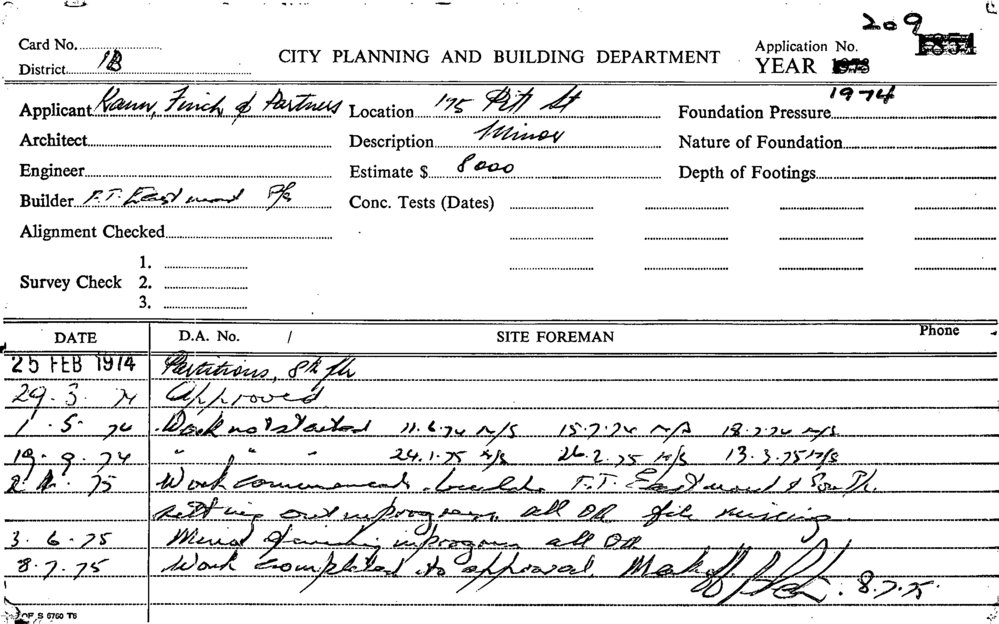 209
Card No. Application No.
District 1B CITY PLANNING AND BUILDING DEPARTMENT YEAR 1973
1974
Applicant Kann, Finch & Partners Location 175 Pitt St Foundation Pressure
Architect Description Minor Nature of Foundation
Engineer Estimate $ 8000 Depth of Footings
Builder F.T. Eastwood P/L Conc. Tests (Dates)
Alignment Checked
1.
Survey Check 2.
3.
DATE D.A. No. / SITE FOREMAN Phone
25 FEB 1974 Partitions, 8th flr
29.3.74 Approved
1.5.74 Work not started 11.6.74 N/S 15.7.74 N/S 18.7.74 N/S
19.9.74 " " " 24.1.75 N/S 26.2.75 N/S 13.3.75 N/S
75 Work commenced, builder F.T. Eastwood & Son P/L.
setting out in progress, all OK file missing
3.6.75 Minor finishing in progress all OK
8.7.75 Work completed to approval. Mark off. 8.7.75
OF S 6760 T6